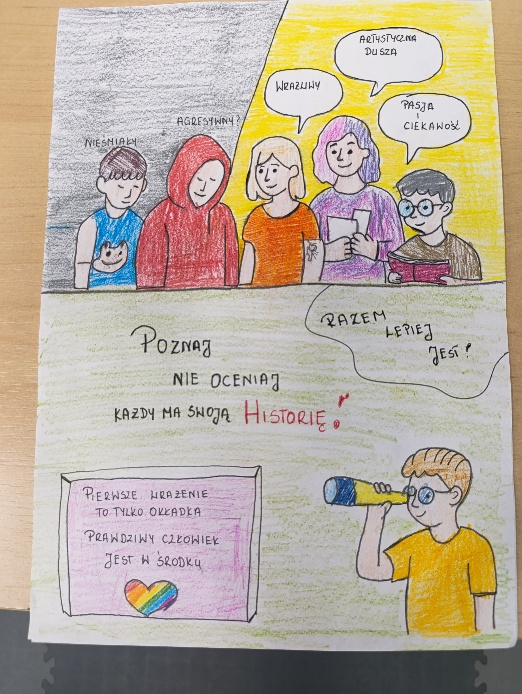 NIEŚMIAŁY
AGRESYWNY?
WRAŻLIWY
ARTYSTYCZNA
DUSZA
PASJA
I
CIEKAWOŚĆ
POZNAJ
NIE OCENIAJ
KAŻDY MA SWOJĄ HISTORIĘ!
RAZEM
LEPIEJ
JEST!
PIERWSZE WRAŻENIE
TO TYLKO OKŁADKA
PRAWDZIWY CZŁOWIEK
JEST W ŚRODKU